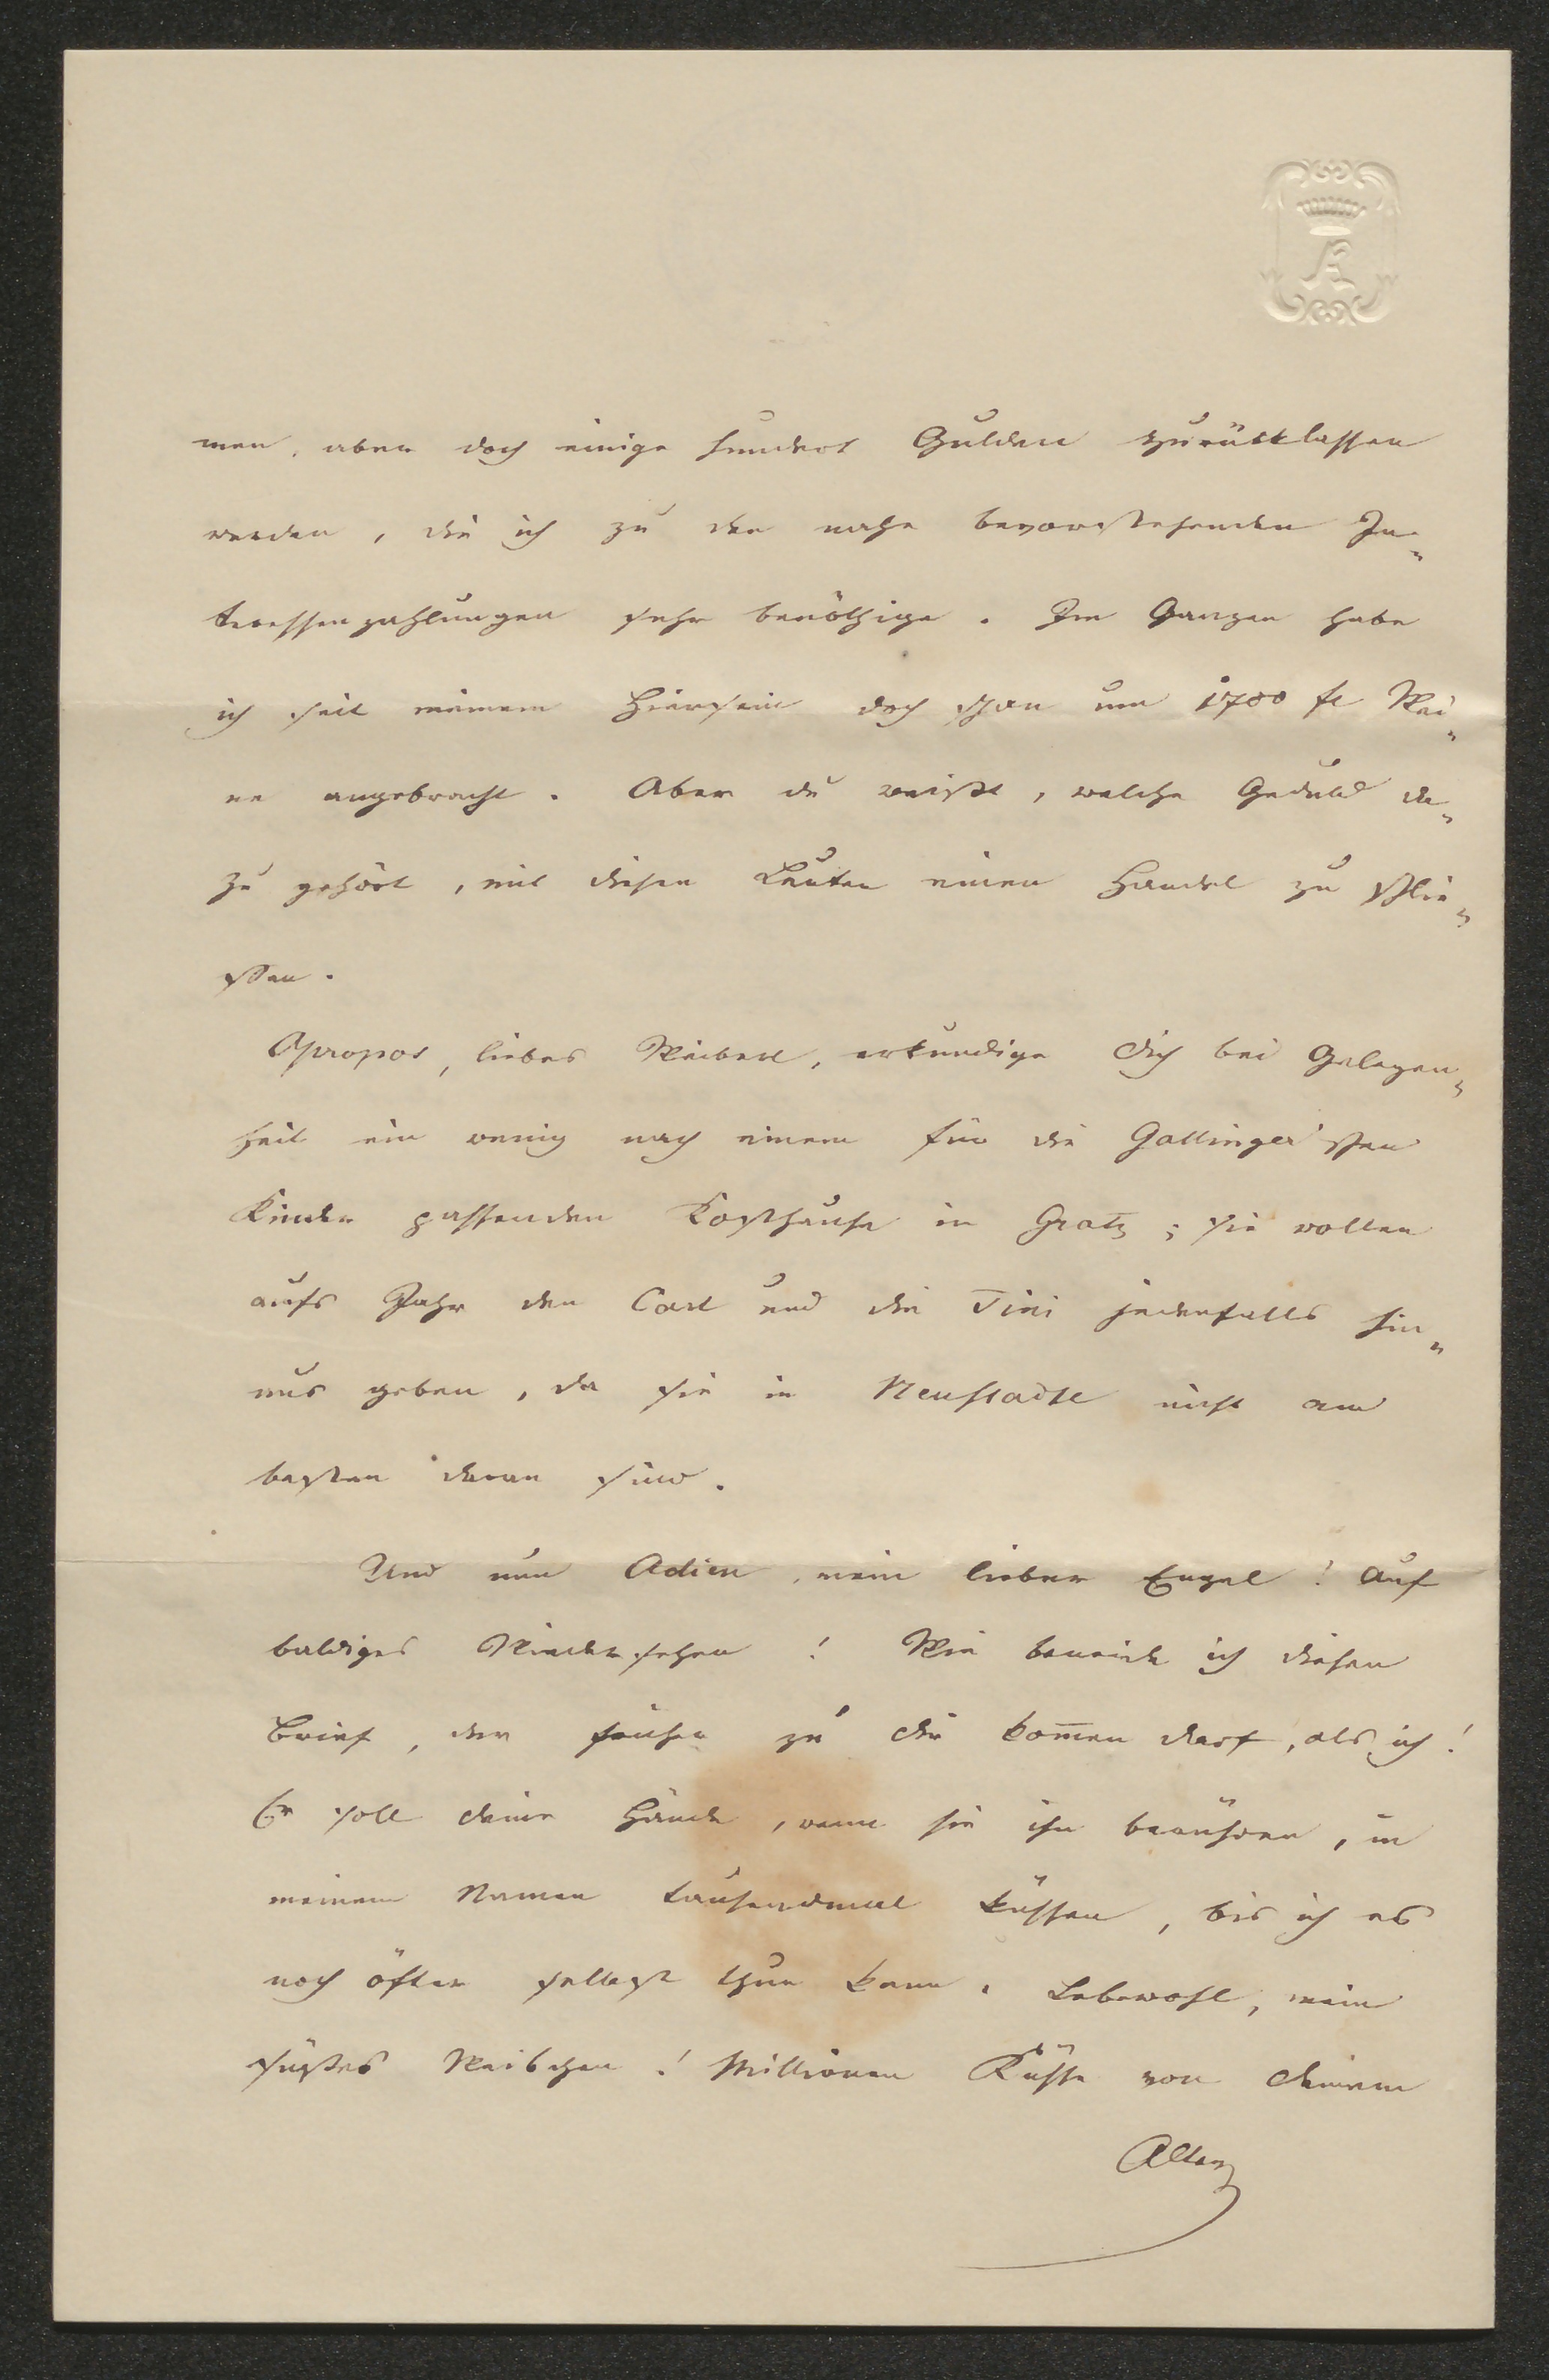 A
men, aber doch einige hundert Gulden zurücklassen
werden, die ich zu den nahe bevorstehenden In„
teressenzahlungen sehr benöthige. Im Ganzen habe
ich seit meinem Hiersein doch schon um 1700 fl Wei„
ne angebracht. Aber du weißt, welche Geduld da„
zu gehört, mit diesen Leuten einen Handel zu schlie„
ßen.
Apropos, liebes Weiberl, erkundige dich bei Gelegen„
heit ein wenig nach einem für die Gallinger'schen
Kinder passenden Kosthause in Gratz; sie wollen
aufs Jahr den Carl und die Tini jedenfalls hin„
aus geben, da sie in Neustadtl nicht am
besten daran sind.
Und nun Adieu, mein lieber Engel! Auf
baldiges Wiedersehen! Wie beneide ich diesen
Brief, der früher zu dir kom̄en darf, als ich!
Er soll deine Hände, wenn sie ihn berühren, in
meinem Namen tausendmal küssen, bis ich es
noch öfter selbst thun kann. Lebewohl, mein
süßes Weibchen! Millionen Küsse von deinem
Alten